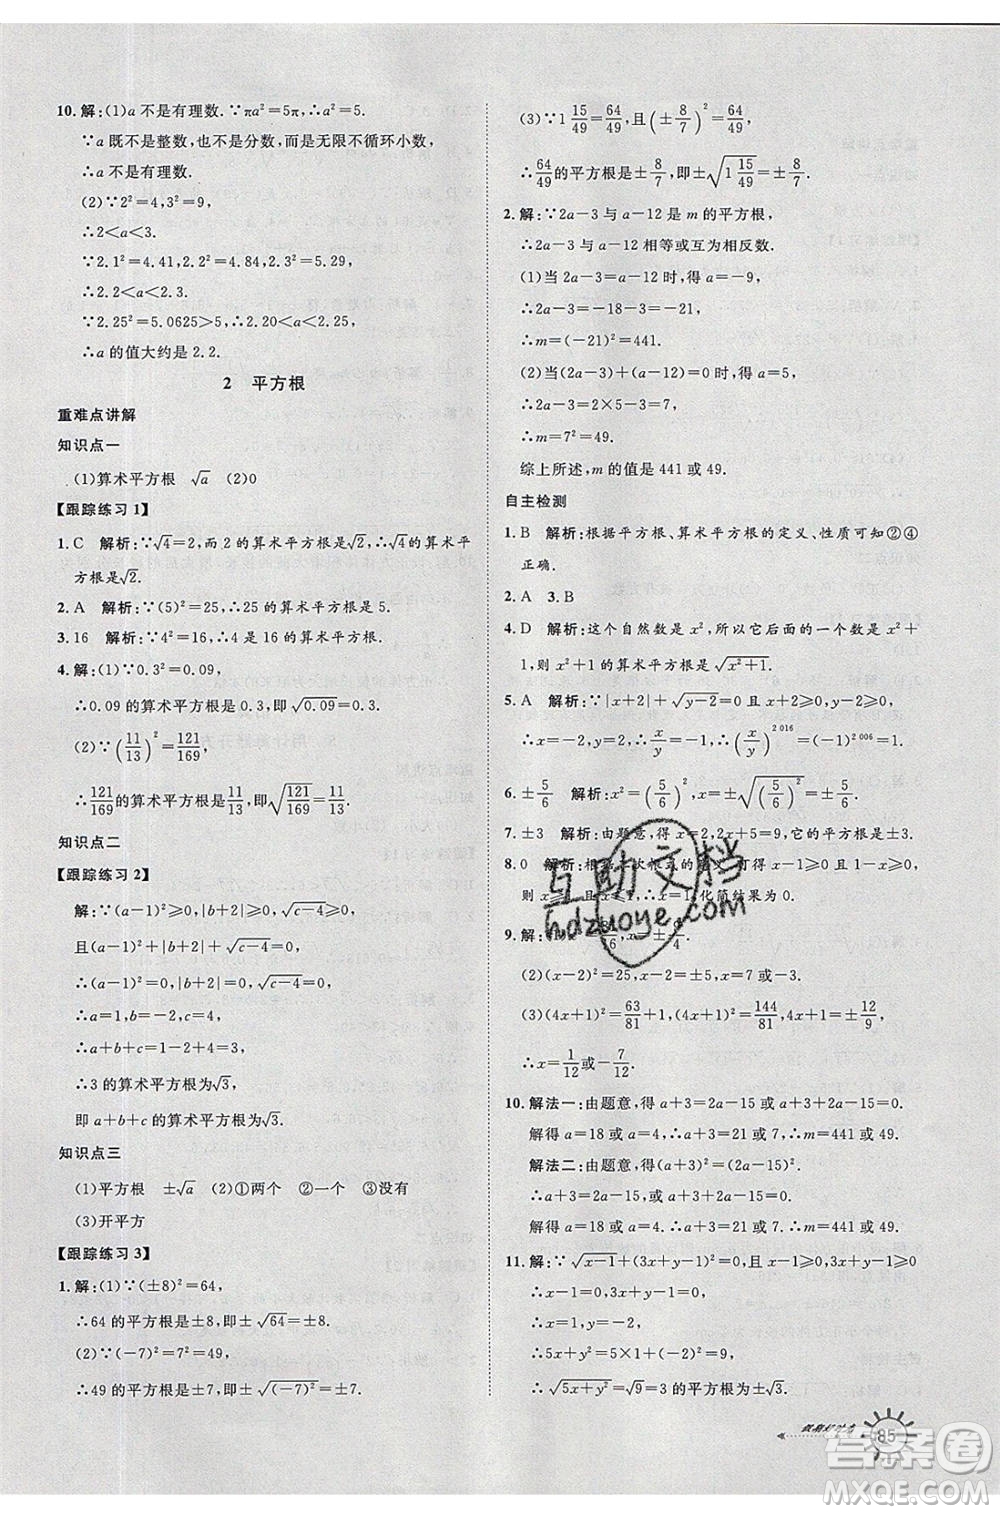 10.解:(1)a 不是有理数.∵πa²=5π,∴a²=5.
∵a 既不是整数,也不是分数,而是无限不循环小数,
∴a 不是有理数.
(2)∵2²=4,3²=9,
∴2<a<3.
∵2.1²=4.41,2.2²=4.84,2.3²=5.29,
∴2.2<a<2.3.
∵2.25²=5.0625>5,∴2.2<a<2.25.
∴a 的值大约是 2.2.
2 平方根
重难点讲解
知识点一
(1)算术平方根 √a (2)0
【跟踪练习 1】
1.C 解析:∵√4=2,而 2 的算术平方根是√2,∴√4的算术
平方根是√2.
2.A 解析:∵(5)²=25,∴25 的算术平方根是 5.
3.16 解析:∵4²=16,∴4 是 16 的算术平方根.
4.解:(1)∵0.3²=0.09,
∴0.09 的算术平方根是 0.3,即√0.09=0.3.
(2)∵(11/13)²=121/169,
∴121/169的算术平方根是11/13,即√(121/169)=11/13.
知识点二
【跟踪练习 2】
解:∵(a-1)²≥0,|b+2|≥0,√(c-4)≥0,
且(a-1)²+|b+2|+√(c-4)=0,
∴(a-1)²=0,|b+2|=0,√(c-4)=0,
∴a=1,b=-2,c=4.
∴a+b+c=1-2+4=3,
∴3 的算术平方根为√3,
即 a+b+c 的算术平方根为√3.
知识点三
(1)平方根 ±√a (2)①两个 ②一个 ③没有
(3)开平方
【跟踪练习 3】
1.解:(1)∵(±8)²=64,
∴64 的平方根是±8,即±√64=±8.
(2)∵(-7)²=7²=49,
∴49 的平方根是±7,即±√(-7)²=±7.
(3)∵1 15/49=64/49,且(±8/7)²=64/49,
∴64/49的平方根是±8/7,即±√(1 15/49)=±8/7.
2.解:∵2a-3 与 a-12 是 m 的平方根,
∴2a-3 与 a-12 相等或互为相反数.
(1)当 2a-3=a-12 时,a=-9,
∴2a-3=-18-3=-21,
∴m=(-21)²=441.
(2)当(2a-3)+(a-12)=0 时,a=5,
∴2a-3=2×5-3=7,
∴m=7²=49.
综上所述,m 的值是 441 或 49.
自主检测
1.B 解析:根据平方根、算术平方根的定义、性质可知②④
正确.
2.A 3.B
4.D 解析:这个自然数是 x²,所以它后面的一个数是 x²+
1,则 x²+1 的算术平方根是√(x²+1).
5.A 解析:∵|x+2|+√(y-2)=0,∴x+2=0,y-2=0,
∴x=-2,y=2,∴x/y=-1,∴(x/y)^2016=(-1)^2006=1.
6.±5/6 解析:x²=(5/6)²,∴x=±√(5/6)²=±5/6.
7.±3 解析:由题意,得 x=2,x²+5=9,它的平方根是±3.
8.0 解析:根据二次根式的意义,可得 x-1≥0,1-x≥0,
则 x≥1,x≤1,∴x=1,化简结果为 0.
9.解:(1)x²=81/16,x=±9/4.
(2)(x-2)²=25,x-2=±5,x=7 或 x=-3.
(3)(4x+1)²=63/81+1,(4x+1)²=144/81,4x+1=±12/9,
∴x=1/12或-7/12.
10.解法一:由题意,得 a+3=2a-15 或 a+3=15-2a.
解得 a=18 或 a=4,∴a+3=21 或 7,∴m=441 或 49.
解法二:由题意,得(a+3)²=(2a-15)²,
∴a+3=2a-15 或 a+3=15-2a.
解得 a=18 或 a=4,∴a+3=21 或 7,∴m=441 或 49.
11.解:∵√(x-1)+(3x+y-1)²=0,且 x-1≥0,(3x+y-1)²≥0,
∴x-1=0,3x+y-1=0.
∴x=1,y=-2,
∴5x+y²=5×1+(-2)²=9.
∴√(5x+y²)=√9=3.
互助文档
hdzuoye.com
假期好时光
85
答案圈
MXQE.COM